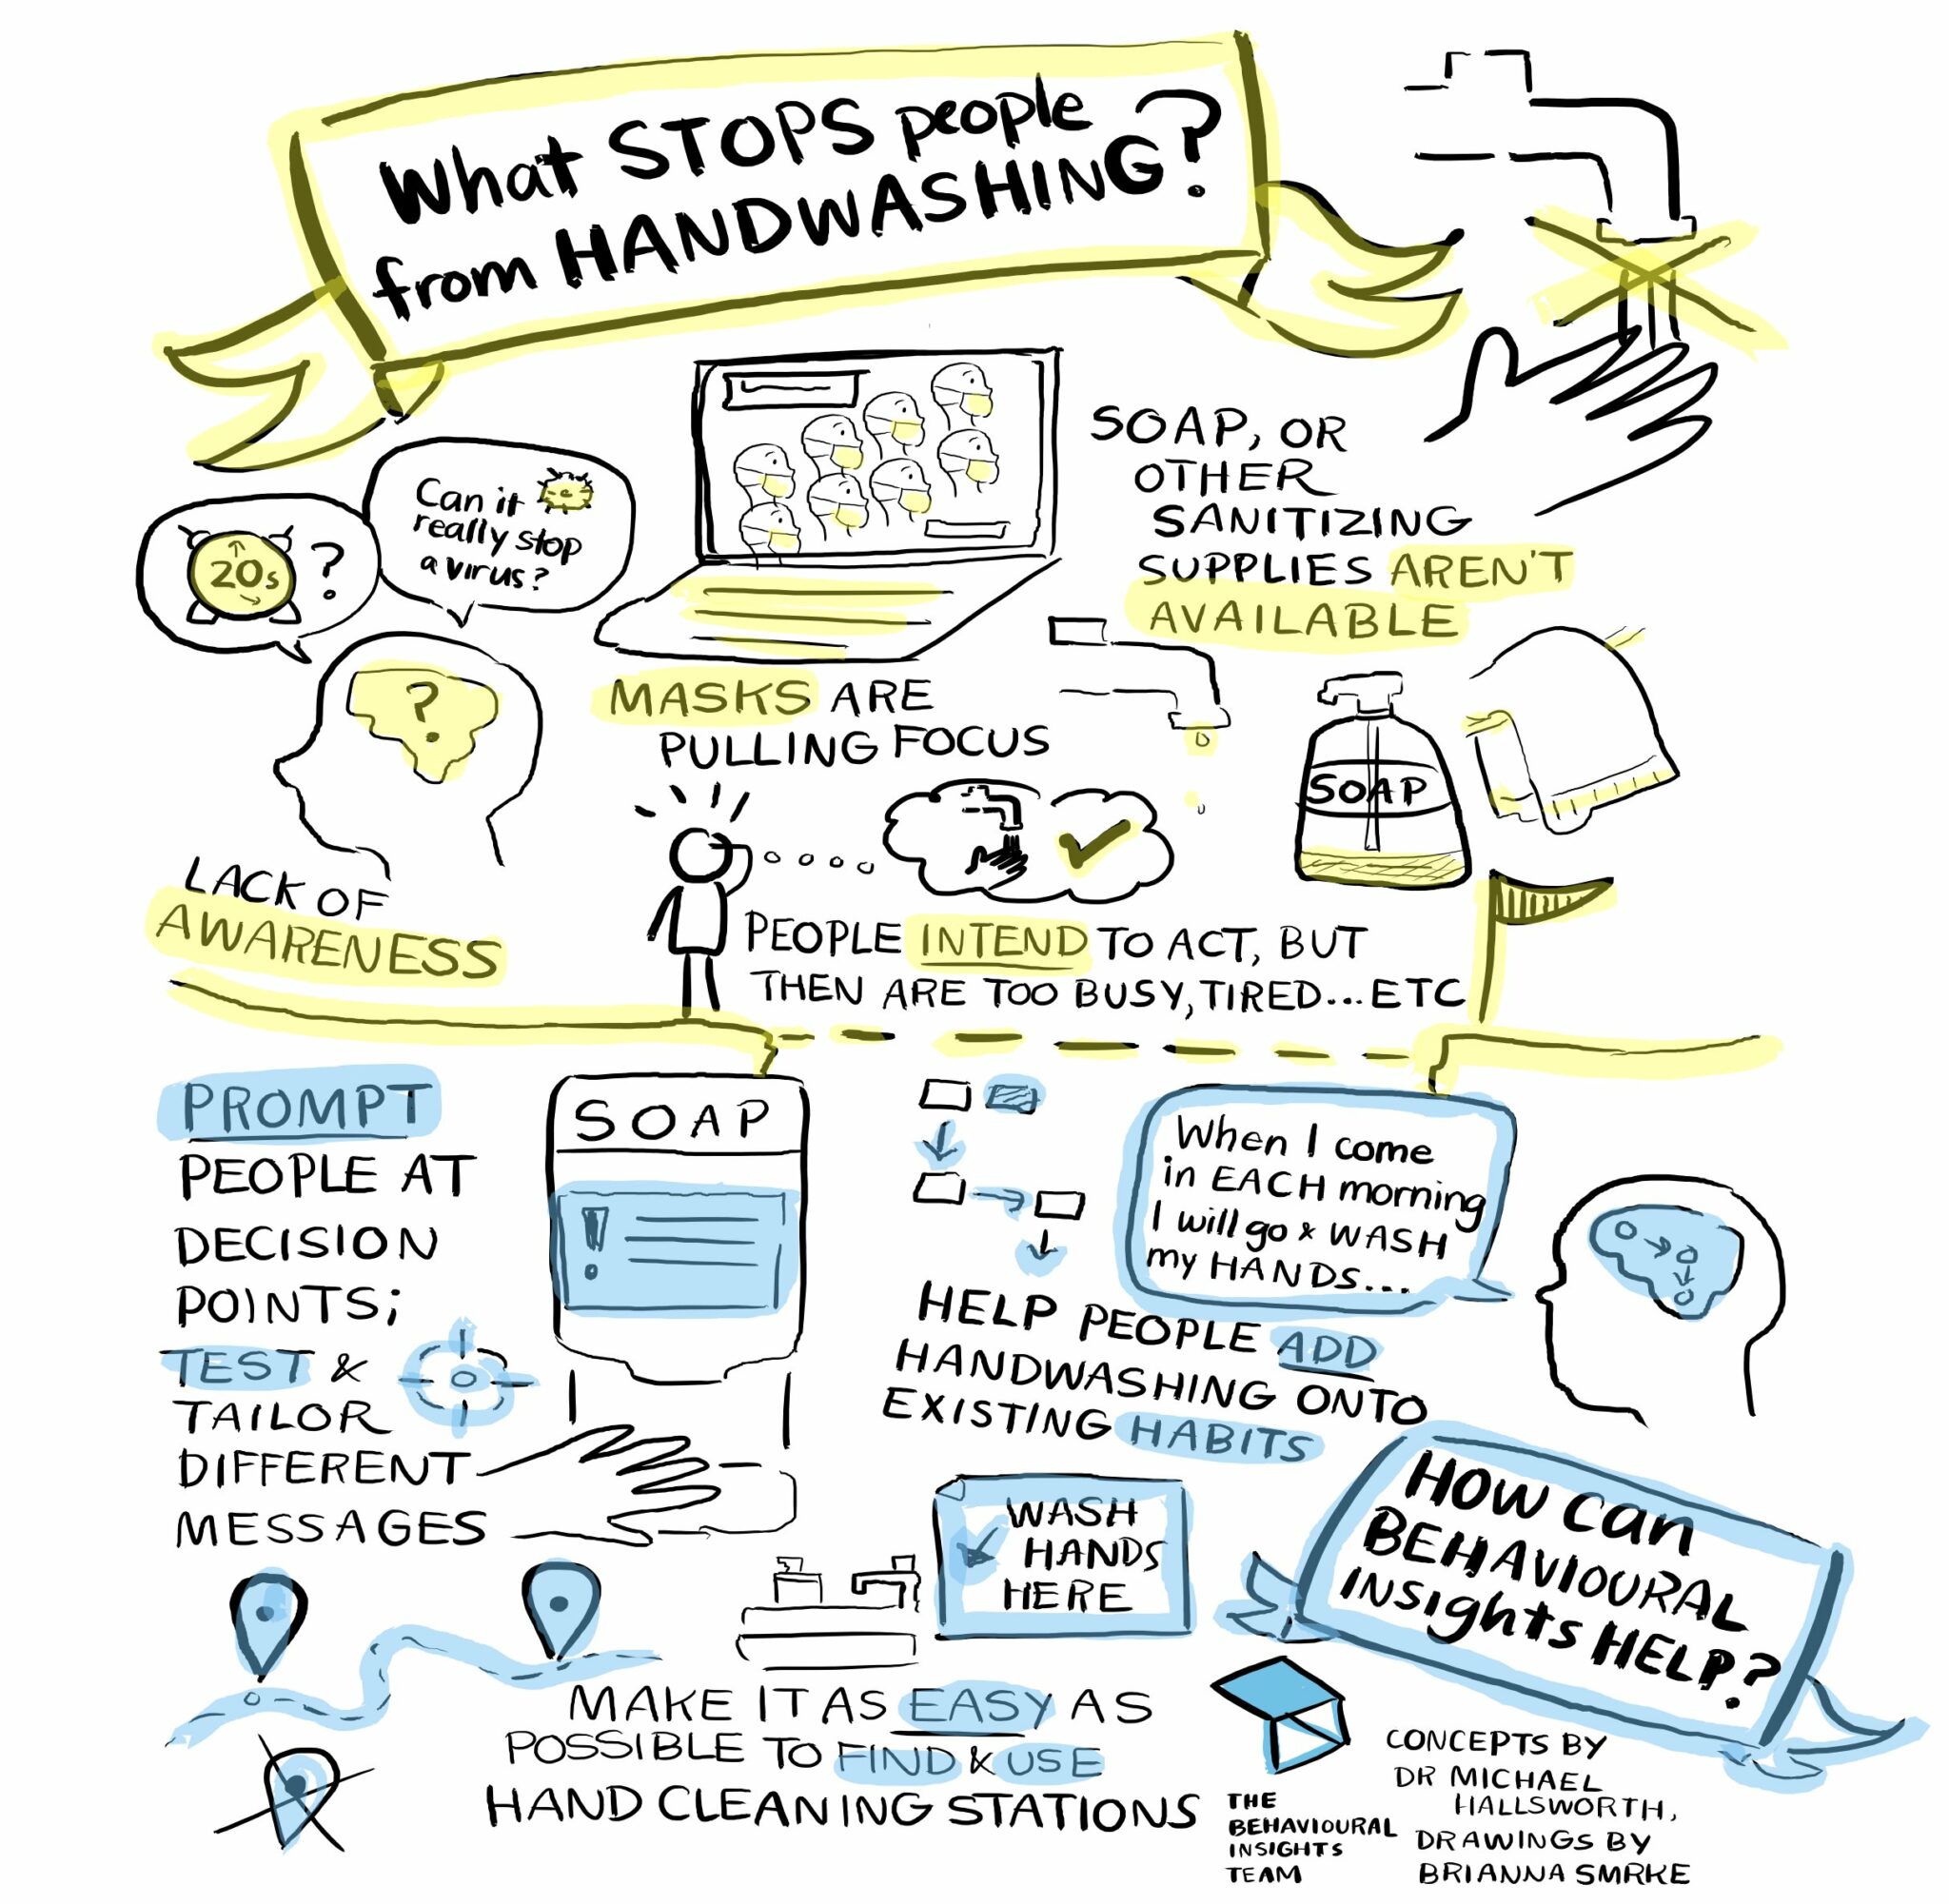 What STOPS people
from HANDWASHING?
20s ?
Can it
really stop
a virus?
?
LACK OF
AWARENESS
MASKS ARE
PULLING FOCUS
SOAP, OR
OTHER
SANITIZING
SUPPLIES AREN'T
AVAILABLE
SOAP
PEOPLE INTEND TO ACT, BUT
THEN ARE TOO BUSY, TIRED...ETC
PROMPT
PEOPLE AT
DECISION
POINTS;
TEST &
TAILOR
DIFFERENT
MESSAGES
SOAP
!
When I come
in EACH morning
I will go & WASH
my HANDS...
HELP PEOPLE ADD
HANDWASHING ONTO
EXISTING HABITS
WASH
HANDS
HERE
MAKE IT AS EASY AS
POSSIBLE TO FIND & USE
HAND CLEANING STATIONS
HOW Can
BEHAVIOURAL
INSights HELP?
THE
BEHAVIOURAL
INSIGHTS
TEAM
CONCEPTS BY
DR MICHAEL
HALLSWORTH,
DRAWINGS BY
BRIANNA SMRKE